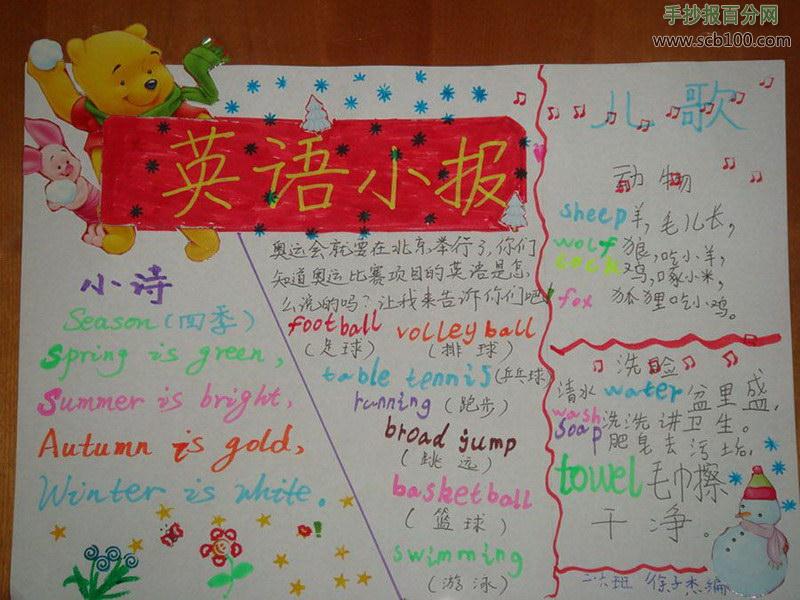 手抄报百分网
www.scb100.com
英语小报
小诗
Season(四季)
Spring is green,
Summer is bright,
Autumn is gold,
Winter is white.
奥运会就要在北京举行了,你们
知道奥运比赛项目的英语是怎
么说的吗?让我来告诉你们吧!
football volleyball
(足球) (排球)
table tennis(乒乓球)
running (跑步)
broad jump
(跳远)
basketball
(篮球)
swimming
(游泳)
儿歌
动物
sheep羊,毛儿长,
wolf 狼,吃小羊,
cock 鸡,啄小米,
fox 狐狸吃小鸡。
洗脸
清水 water 盆里盛,
wash 洗洗讲卫生。
soap 肥皂去污垢,
towel 毛巾擦
干净。
二六班 徐子杰编